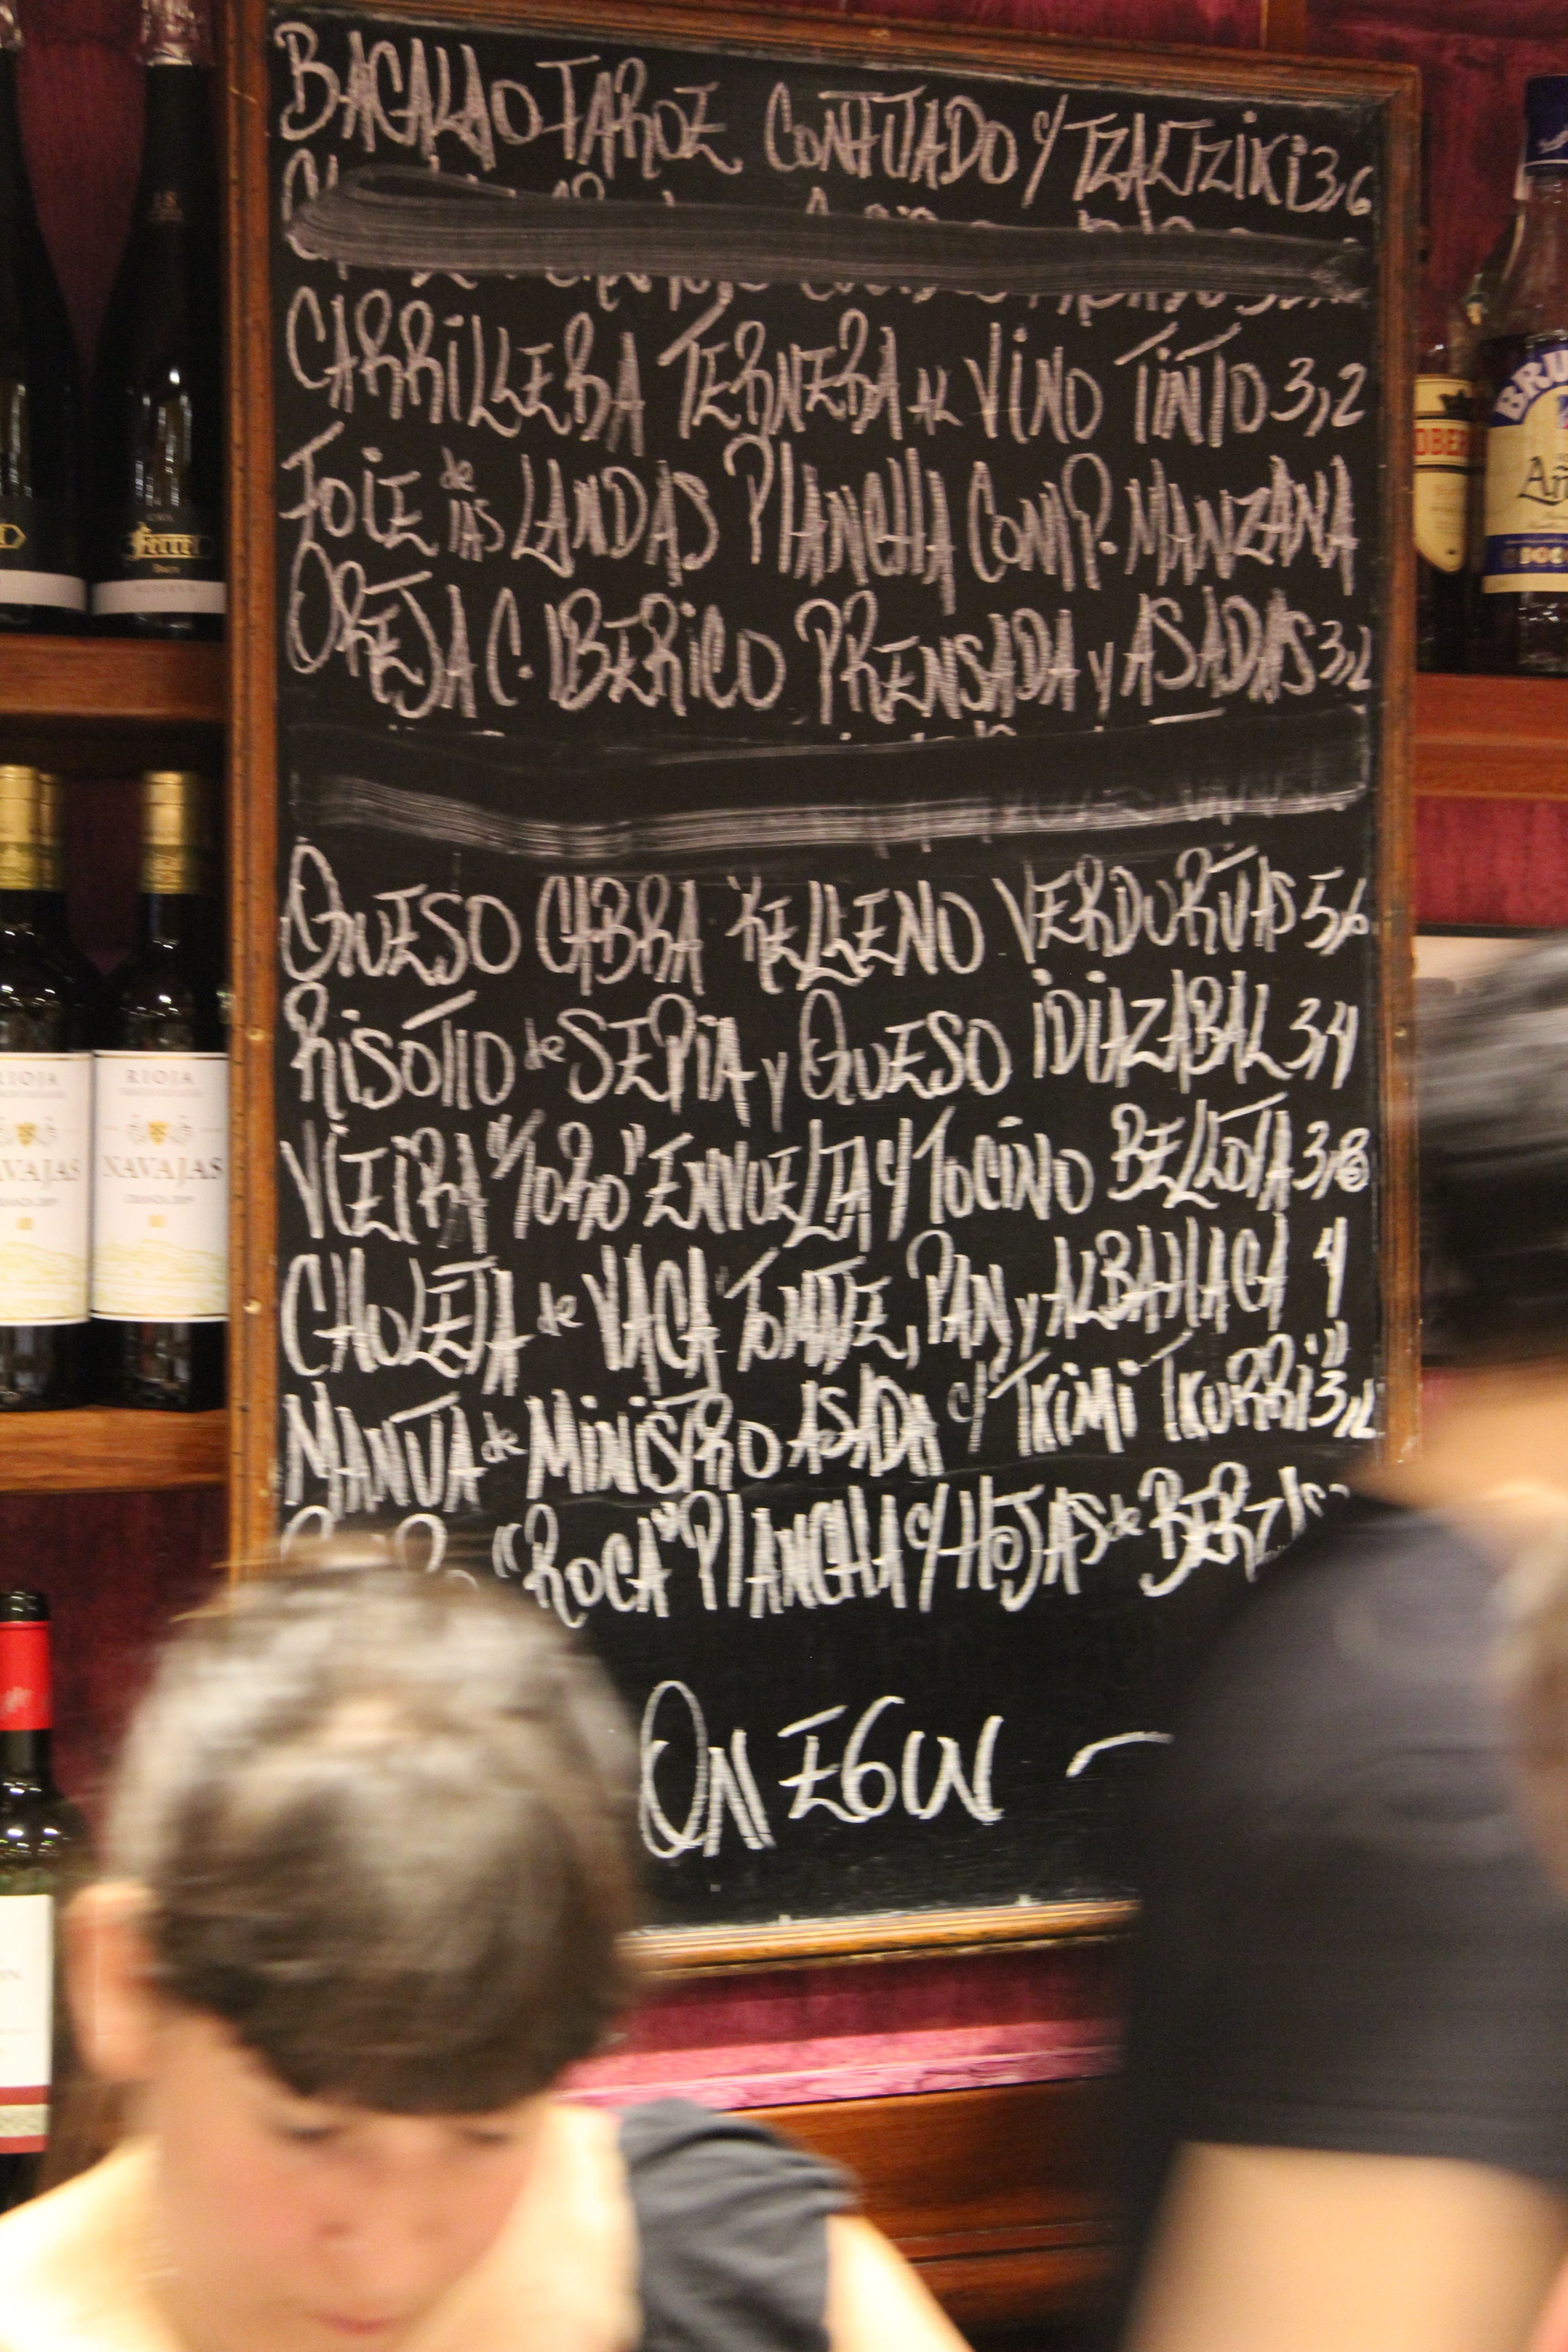 BACALAO FAROE CONFITADO Y TZALTZIKI 3,6
CARRILLERA TERNERA AL VINO TINTO 3,2
FOIE de las LANDAS PLANCHA COMP. MANZANA
OREJA C. IBERICO PRENSADA y ASADAS 3,2
QUESO CABRA RELLENO VERDURITAS 5,6
RISOTTO de SEPIA y QUESO IDIAZABAL 3,4
VIEIRA "TORO" ENVUELTA Y TOCINO BELLOTA 3,8
CHULETA de VACA TOMATE, PAN y ALBAHACA 4
MANTA de MINISTRO ASADA c/ TKIMI TKURRI" 3,2
"ROCA" PLANCHA c/ HOJAS de
ON EGIN
Ferrer
RESERVA
RIOJA
RIOJA
NAVAJAS
CRIANZA 2009